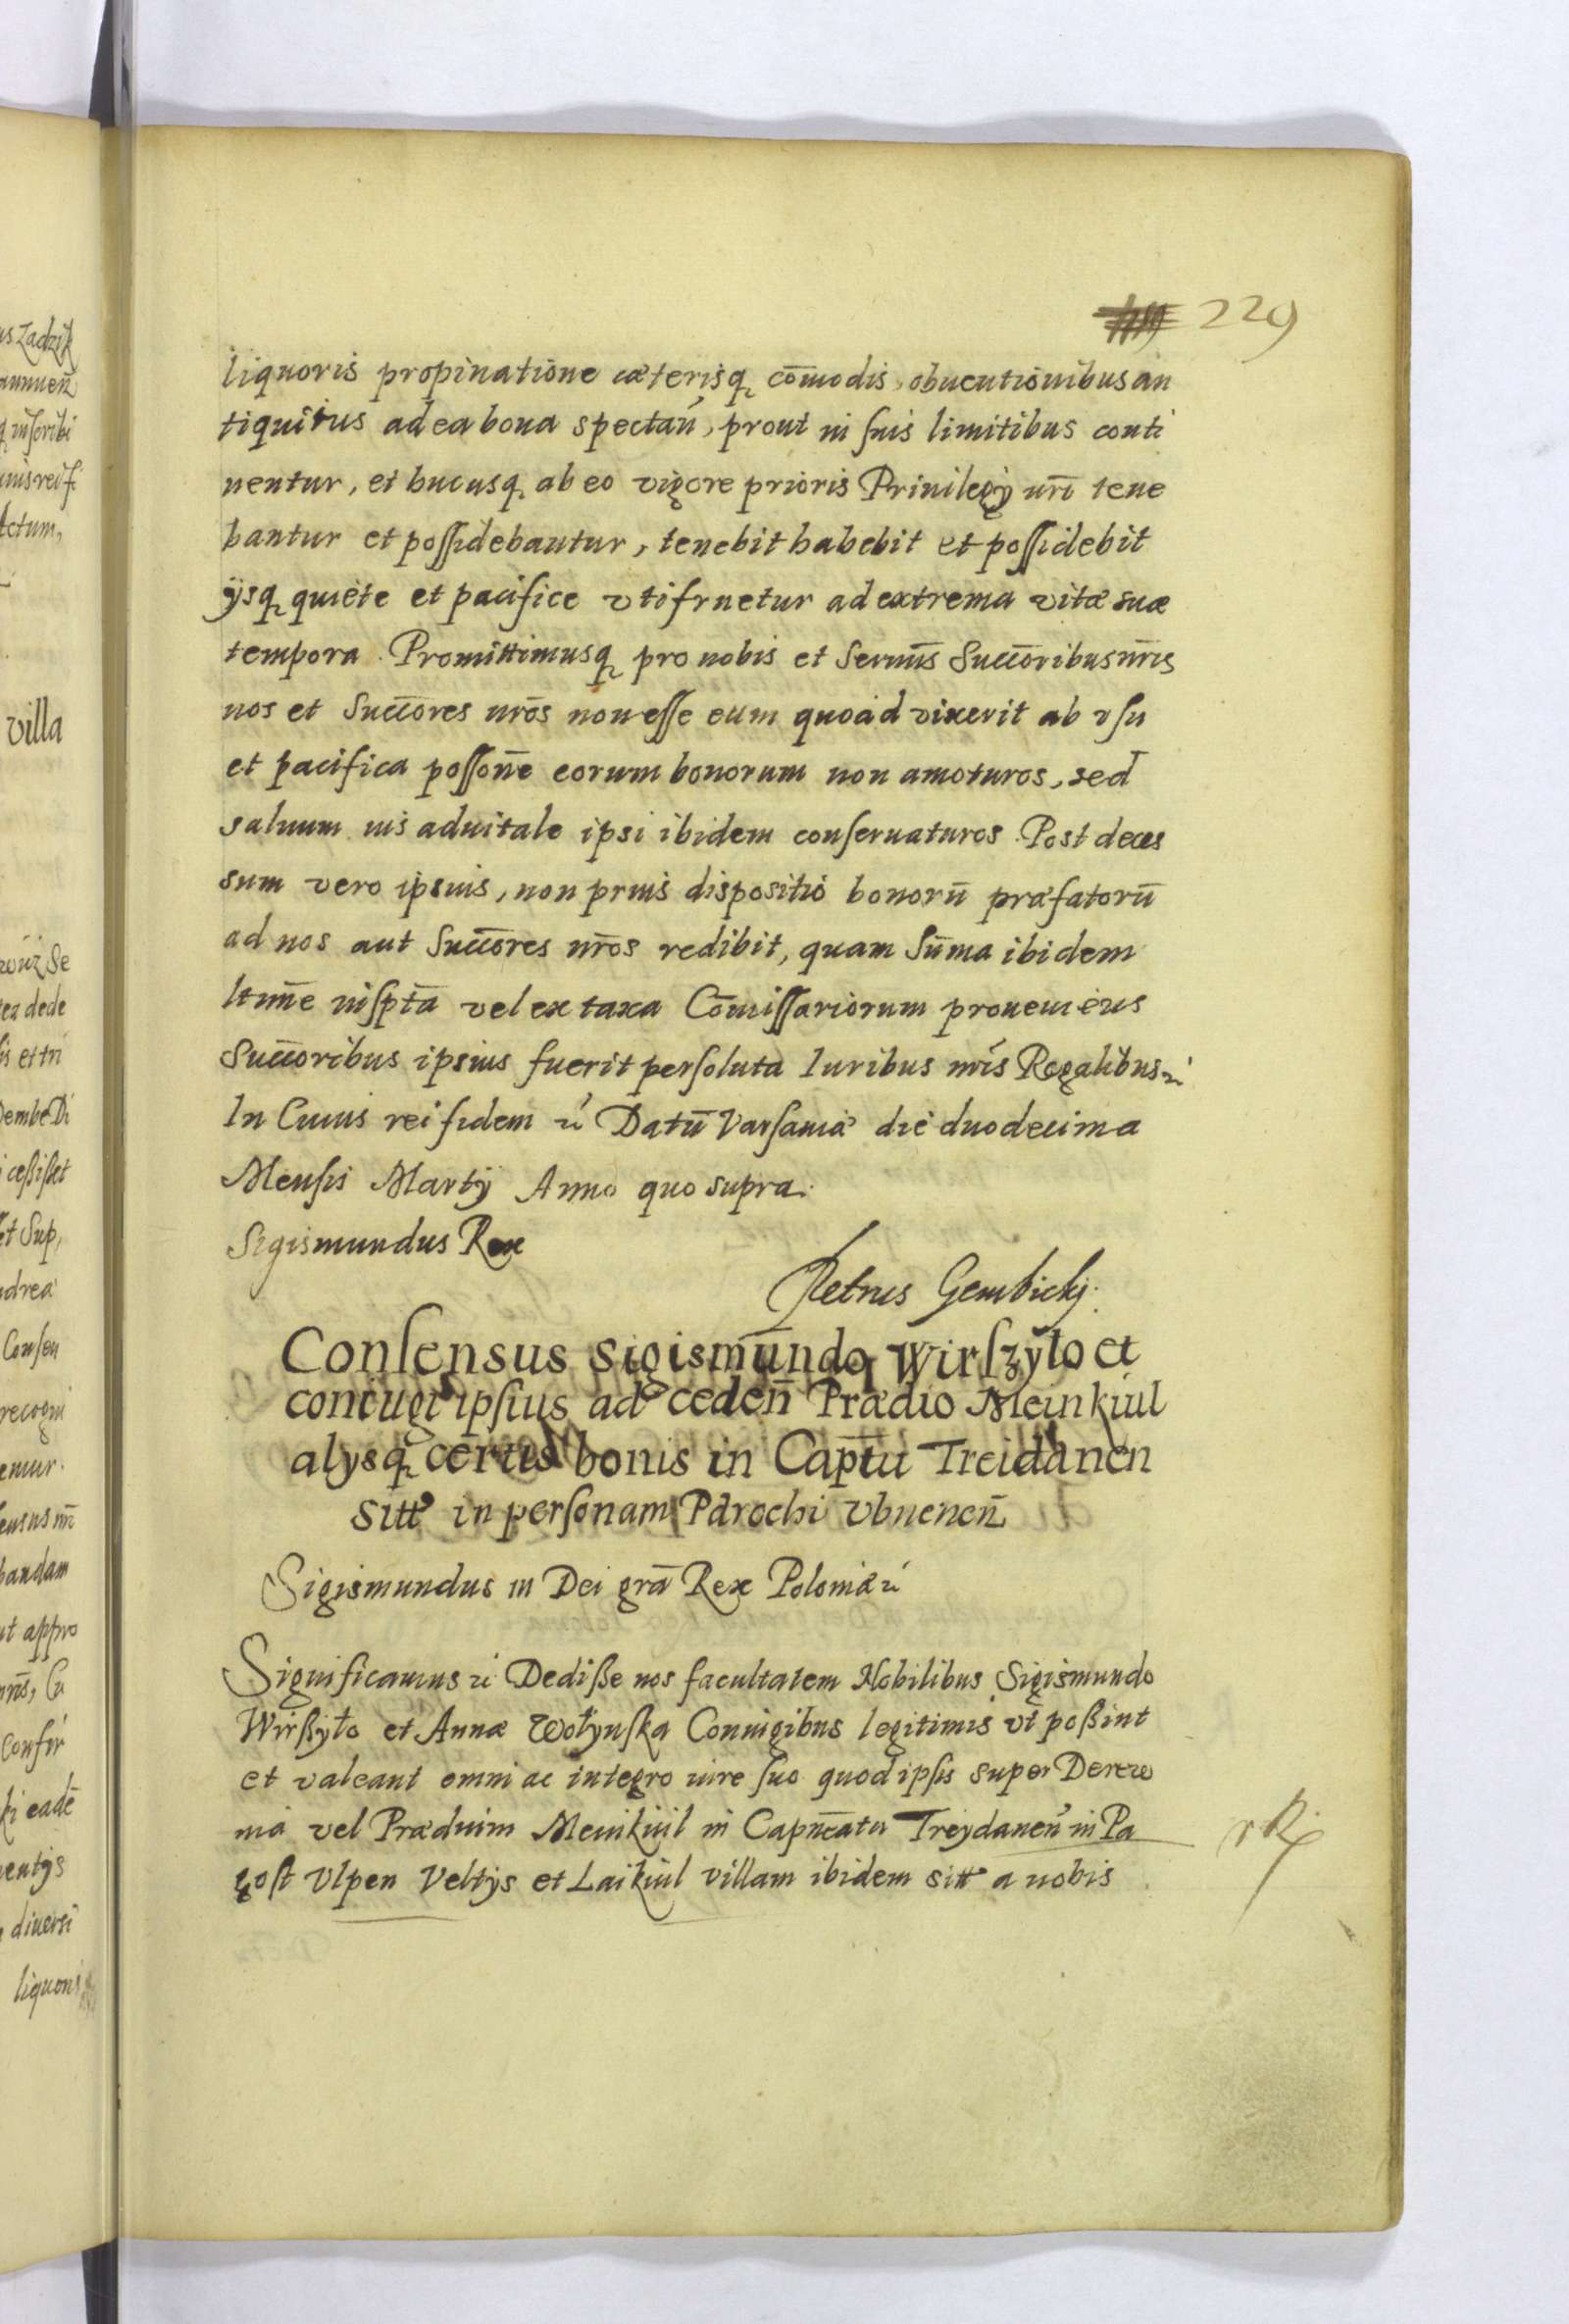 229
liquoris propinatione cæterisq, com̄odis, obuentionibus an
tiquitus ad ea bona spectan̄, prout in suis limitibus conti
nentur, et hucusq, ab eo vigore prioris Priuilegÿ nr̄i tene
bantur et possidebantur, tenebit habebit et possidebit
ÿsq, quiete et pacifice vtifruetur ad extrema vitæ suæ
tempora. Promittimusq, pro nobis et Sernm̄s Succōribus nr̄is
nos et Succōres nrōs non esse eum quoad vixerit ab vsu
et pacifica possōne eorum bonorum non amoturos, sed
saluum ius aduitale ipsi ibidem conseruaturos. Post deces
sum vero ipsius, non prius dispositio bonorū præfatorū
ad nos aut Succōres nrōs redibit, quam Sūma ibidem
ltīme inspt̄a vel ex taxa Cōmissariorum proueniens
Succōribus ipsius fuerit persoluta Iuribus nr̄is Regalibus &
In Cuius rei fidem & Datū Varsauiæ die duodecima
Mensis Martÿ Anno quo supra.
Sigismundus Rex
Petrus Gembickj.
Consensus Sigismundo Wirszyło et
coniugi ipsius ad cedēn Prædio Meinkiul
alysq, certis bonis in Capt̄u Treidanen
sitt in personam Parochi Vbnenen̄
Sigismundus III Dei grā Rex Poloniæ &
Significamus & Dediße nos facultatem Nobilibus Sigismundo
Wirßyło et Annæ Wołynska Coniugibus legitimis vt poßint
et valeant omni ac integro iure suo quod ipsis super Derew
nia vel Prædium Meinkiul in Capn̄eatu Treydanen̄ in Pa
gost Vlpen Veltÿs et Laikiul villam ibidem sitt a nobis